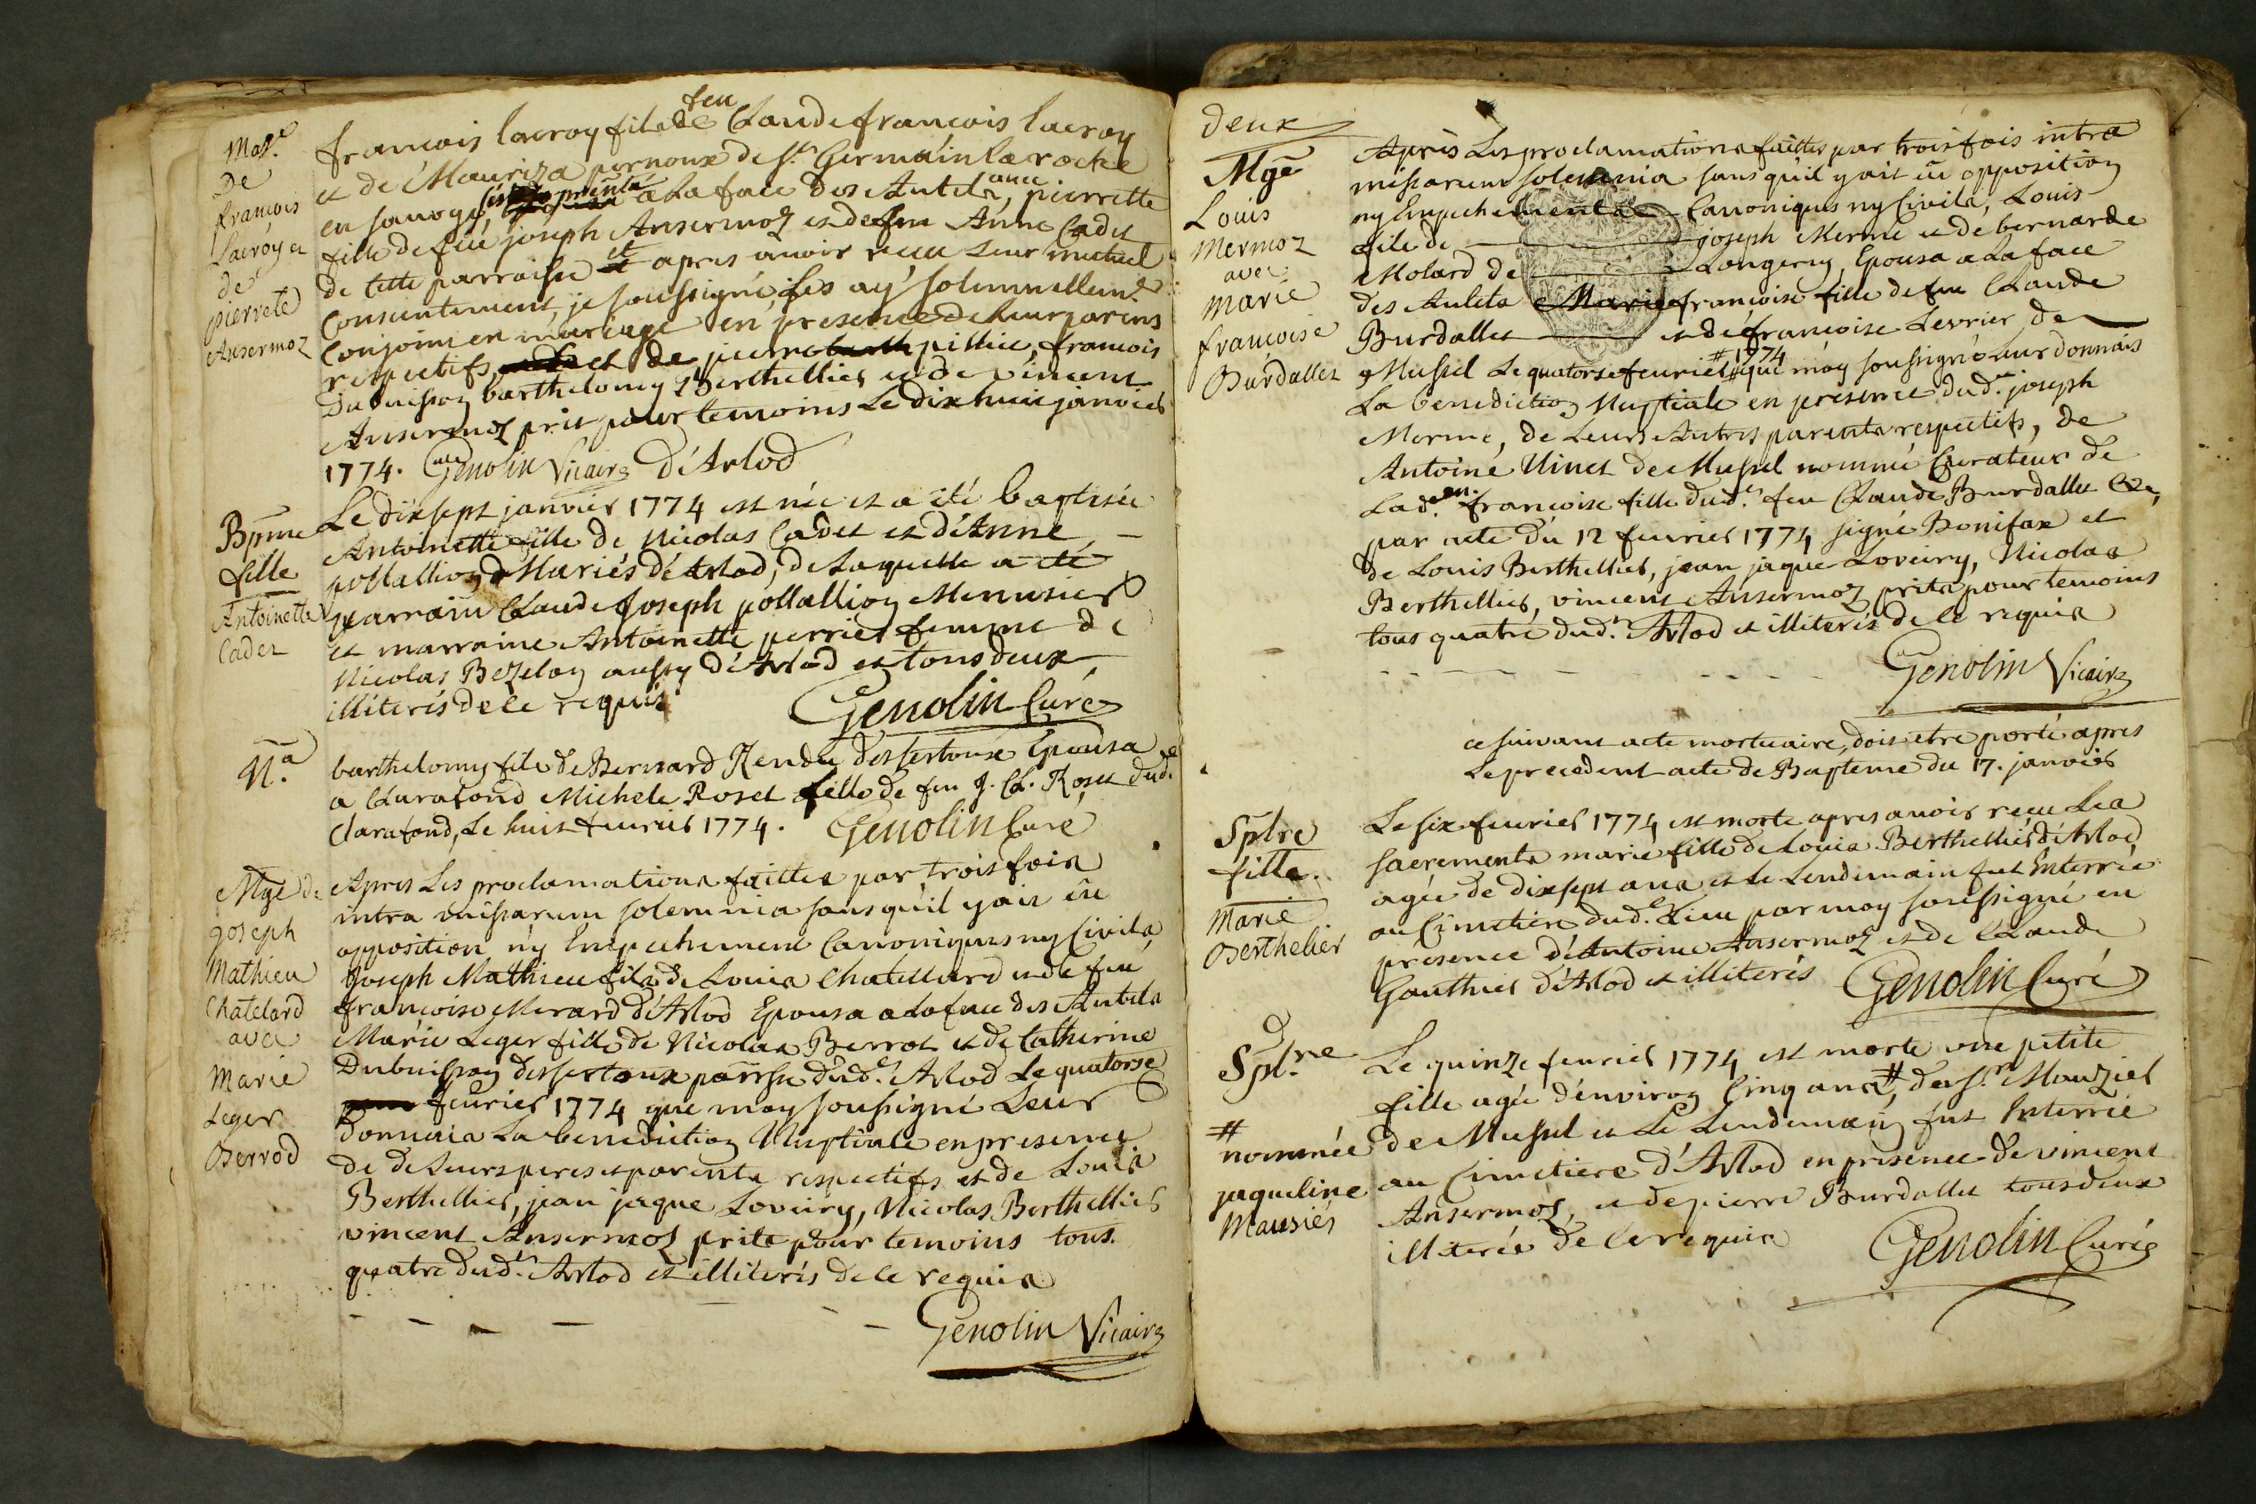 Mar.e
De
francois
Lacroy et
de
pierrete
Ansermoz
francois lacroy fils de feu Claude francois lacroy
et de Mauriza pernoux de st. Germain la roche
en savoye, s'est présenté a la face des Autels, avec pierrette
fille de feu joseph Ansermoz et de feu Anne Cadet
de cette parroisse et apres avoir recu leur mutuel
Consentement, je soussigné, les ay solemnellemt.
Conjoint en mariage en presence de leur parens
respectifs, de pierre pillieu francois
Dubuisson barthelomy Berthellier et de vincent
Ansermoz pris pour temoins Le dix huit janvier
1774. Genolin Vicaire d'Arlod
Bpme
fille
Antoinette
Cadet
Le dixsept janvier 1774 est née et a été baptisée
Antoinette fille de Nicolas Cadet et d'Anne
pollallion Mariés d'Arlod, de laquelle a été
parrain Claude Joseph pollallion Menusier
et marraine Antoinette perrier femme de
Nicolas Bezelon aussy d'Arlod et tous deux
illiterés de ce requis
Genolin Curé
N.a
barthelomy fils de Bernard Rendu dessertoux Epousa
a Clarafond Michele Roset fille de feu J. Cl. Roset dud.
Clarafond, Le huit fevrier 1774. Genolin Curé
Mge de
Joseph
Mathieu
Chatelard
avec
Marie
Leger
Berrod
Apres Les proclamations faittes par trois fois
intra missarum solemnia sans qu'il y ait eu
opposition ny Empechement Canoniques ny Civils,
Joseph Mathieu fils de Louis Chatellard et de feu
francoise Merard d'Arlod Epousa a la face des Autels
Marie Leger fille de Nicolas Berrot et de Catherine
Dubuisson dessertoux parsse dud. Arlod Le quatorse
fevrier 1774 que moy soussigné Leur
Donnais La benediction Nuptiale en presence
de de Leurs peres et parents respectifs et de Louis
Berthellier, jean jaque Loveiry, Nicolas Berthellier
vincent Ansermoz prits pour temoins tous
quatre dud. Arlod et illiterés de ce requis
Genolin Vicaire
deux
Mge
Louis
Mermoz
avec
Marie
francoise
Burdallet
Apres Les proclamations faittes par trois fois intra
missarum solemnia sans qu'il y ait eu opposition
ny Empechements Canoniques ny Civils, Louis
fils de joseph Merme et de bernarde
Molard de Longeray, Epousa a La face
des Autels Marie francoise fille de feu Claude
Burdallet et de francoise Levrier de
Mussel Le quatorse fevrier # 1774 # que moy soussigné Leur donnais
La benediction Nuptiale en presence dud. joseph
Merme, de Leurs Autres parents respectifs, de
Antoine Vinet de Mussel nommé Curateur de
Lad. francoise fille dud. feu Claude Burdallet &c,
par acte du 12 fevrier 1774 signé Bonifax et
de Louis Berthellier, jean jaque Loveiry, Nicolas
Berthellier, vincent Ansermoz prits pour temoins
tous quatre dud. Arlod et illiterés de ce requis
Genolin Vicaire
ce suivant acte mortuaire, doit etre porté apres
Le precedent acte de Bapteme du 17. janvier
Splre
fille.
Marie
Berthelier
Le six fevrier 1774 est morte apres avoir reçu Les
sacrements marie fille de Louis Berthellier d'Arlod
agée de dixsept ans et le Lendemain fut Enterrée
au Cimetiere dud. Lieu par moy soussigné en
presence d'Antoine Ansermoz et de Claude
Gauthier d'Arlod et illiterés Genolin Curé
Splre
#
nommée
jaqueline
Mausier
Le quinze fevrier 1774 est morte une petite
fille agée d'environ Cinq ans #, de sr. Mauzier
de Mussel et Le Lendemain fut Enterrée
au Cimetiere d'Arlod en presence de vincent
Ansermoz, et de pierre Burdallet tous deux
illiterés de ce requis
Genolin Curé